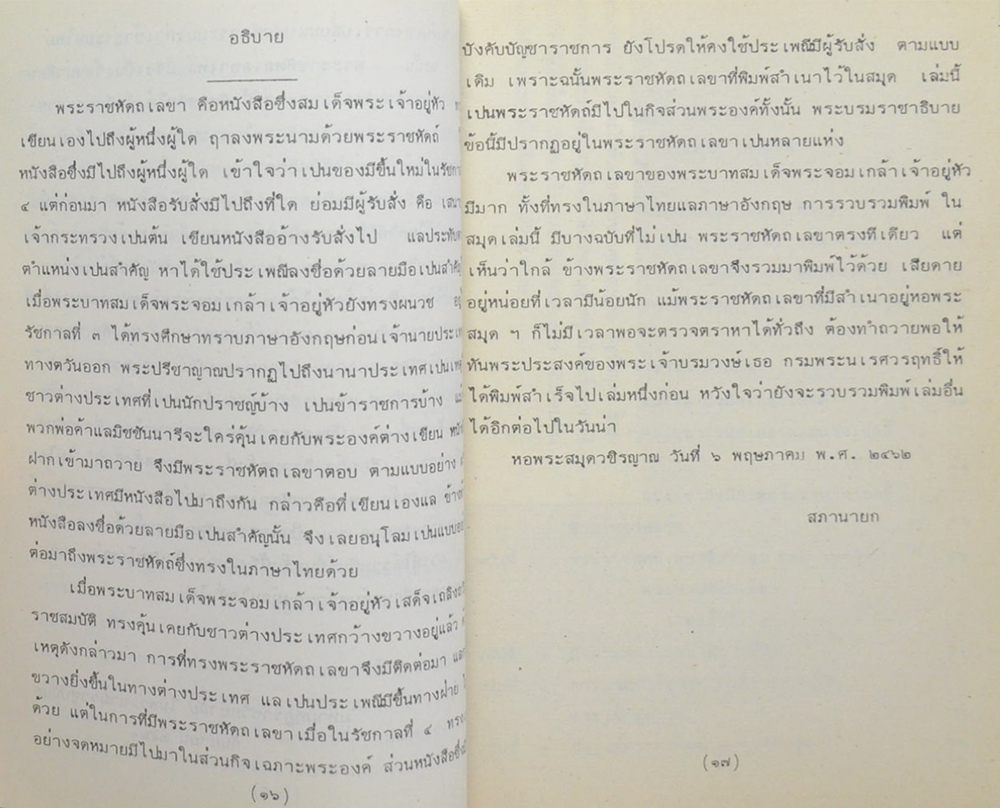 อธิบาย
พระราชหัดถเลขา คือหนังสือซึ่งสมเด็จพระเจ้าอยู่หัว
เขียนเองไปถึงผู้หนึ่งผู้ใด ฤาลงพระนามด้วยพระราชหัดถ์
หนังสือซึ่งมีไปถึงผู้หนึ่งผู้ใด เข้าใจว่าเปนของมีขึ้นใหม่ในรัชกา
๔ แต่ก่อนมา หนังสือรับสั่งมีไปถึงที่ใด ย่อมมีผู้รับสั่ง คือ เสนา
เจ้ากระทรวงเปนต้น เขียนหนังสืออ้างรับสั่งไป แลประทับต
ตำแหน่งเปนสำคัญ หาได้ใช้ประเพณีลงชื่อด้วยลายมือเปนสำคัญ
เมื่อพระบาทสมเด็จพระจอมเกล้าเจ้าอยู่หัวยังทรงผนวช
รัชกาลที่ ๓ ได้ทรงศึกษาทราบภาษาอังกฤษก่อนเจ้านายประเท
ทางตวันออก พระปรีชาญาณปรากฏไปถึงนานาประเทศเปนเหตุ
ชาวต่างประเทศที่เปนนักปราชญ์บ้าง เปนข้าราชการบ้าง
พวกพ่อค้าแลมิชชันนารีจะใคร่คุ้นเคยกับพระองค์ต่างเขียน
ฝากเข้ามาถวาย จึงมีพระราชหัดถเลขาตอบ ตามแบบอย่าง
ต่างประเทศมีหนังสือไปมาถึงกัน กล่าวคือที่เขียนเองแล
หนังสือลงชื่อด้วยลายมือเปนสำคัญนั้น จึงเลยอนุโลมเปนแบบอย่
ต่อมาถึงพระราชหัดถ์ซึ่งทรงในภาษาไทยด้วย
เมื่อพระบาทสมเด็จพระจอมเกล้าเจ้าอยู่หัว เสด็จเถลิงถวั
ราชสมบัติ ทรงคุ้นเคยกับชาวต่างประเทศกว้างขวางอยู่แล้ว
เหตุดังกล่าวมา การที่ทรงพระราชหัดถเลขาจึงมีติดต่อมา
ขวางยิ่งขึ้นในทางต่างประเทศ แลเปนประเพณีมีขึ้นทางฝ่าย
ด้วย แต่ในการที่มีพระราชหัดถเลขาเมื่อในรัชกาลที่ ๔ ทรง
อย่างจดหมายมีไปมาในส่วนกิจเฉภาะพระองค์ ส่วนหนังสือซึ่ง
(๑๖)
บังคับบัญชาราชการ ยังโปรดให้คงใช้ประเพณีมีผู้รับสั่ง ตามแบบ
เดิม เพราะฉนั้นพระราชหัดถเลขาที่พิมพ์สำเนาไว้ในสมุด เล่มนี้
เปนพระราชหัดถ์มีไปในกิจส่วนพระองค์ทั้งนั้น พระบรมราชาธิบาย
ข้อนี้มีปรากฏอยู่ในพระราชหัดถเลขาเปนหลายแห่ง
พระราชหัดถเลขาของพระบาทสมเด็จพระจอมเกล้าเจ้าอยู่หัว
มีมาก ทั้งที่ทรงในภาษาไทยแลภาษาอังกฤษ การรวบรวมพิมพ์ ใน
สมุดเล่มนี้ มีบางฉบับที่ไม่เปน พระราชหัดถเลขาตรงทีเดียว แต่
เห็นว่าใกล้ ข้างพระราชหัดถเลขาจึงรวมมาพิมพ์ไว้ด้วย เสียดาย
อยู่หน่อยที่เวลามีน้อยนัก แม้พระราชหัดถเลขาที่มีสำเนาอยู่หอพระ
สมุด ฯ ก็ไม่มีเวลาพอจะตรวจตราหาได้ทั่วถึง ต้องทำถวายพอให้
ทันพระประสงค์ของพระเจ้าบรมวงษ์เธอ กรมพระนเรศวรฤทธิ์ให้
ได้พิมพ์สำเร็จไปเล่มหนึ่งก่อน หวังใจว่ายังจะรวบรวมพิมพ์เล่มอื่น
ได้อีกต่อไปในวันน่า
หอพระสมุดวชิรญาณ วันที่ ๖ พฤษภาคม พ.ศ. ๒๔๖๒
สภานายก
(๑๗)